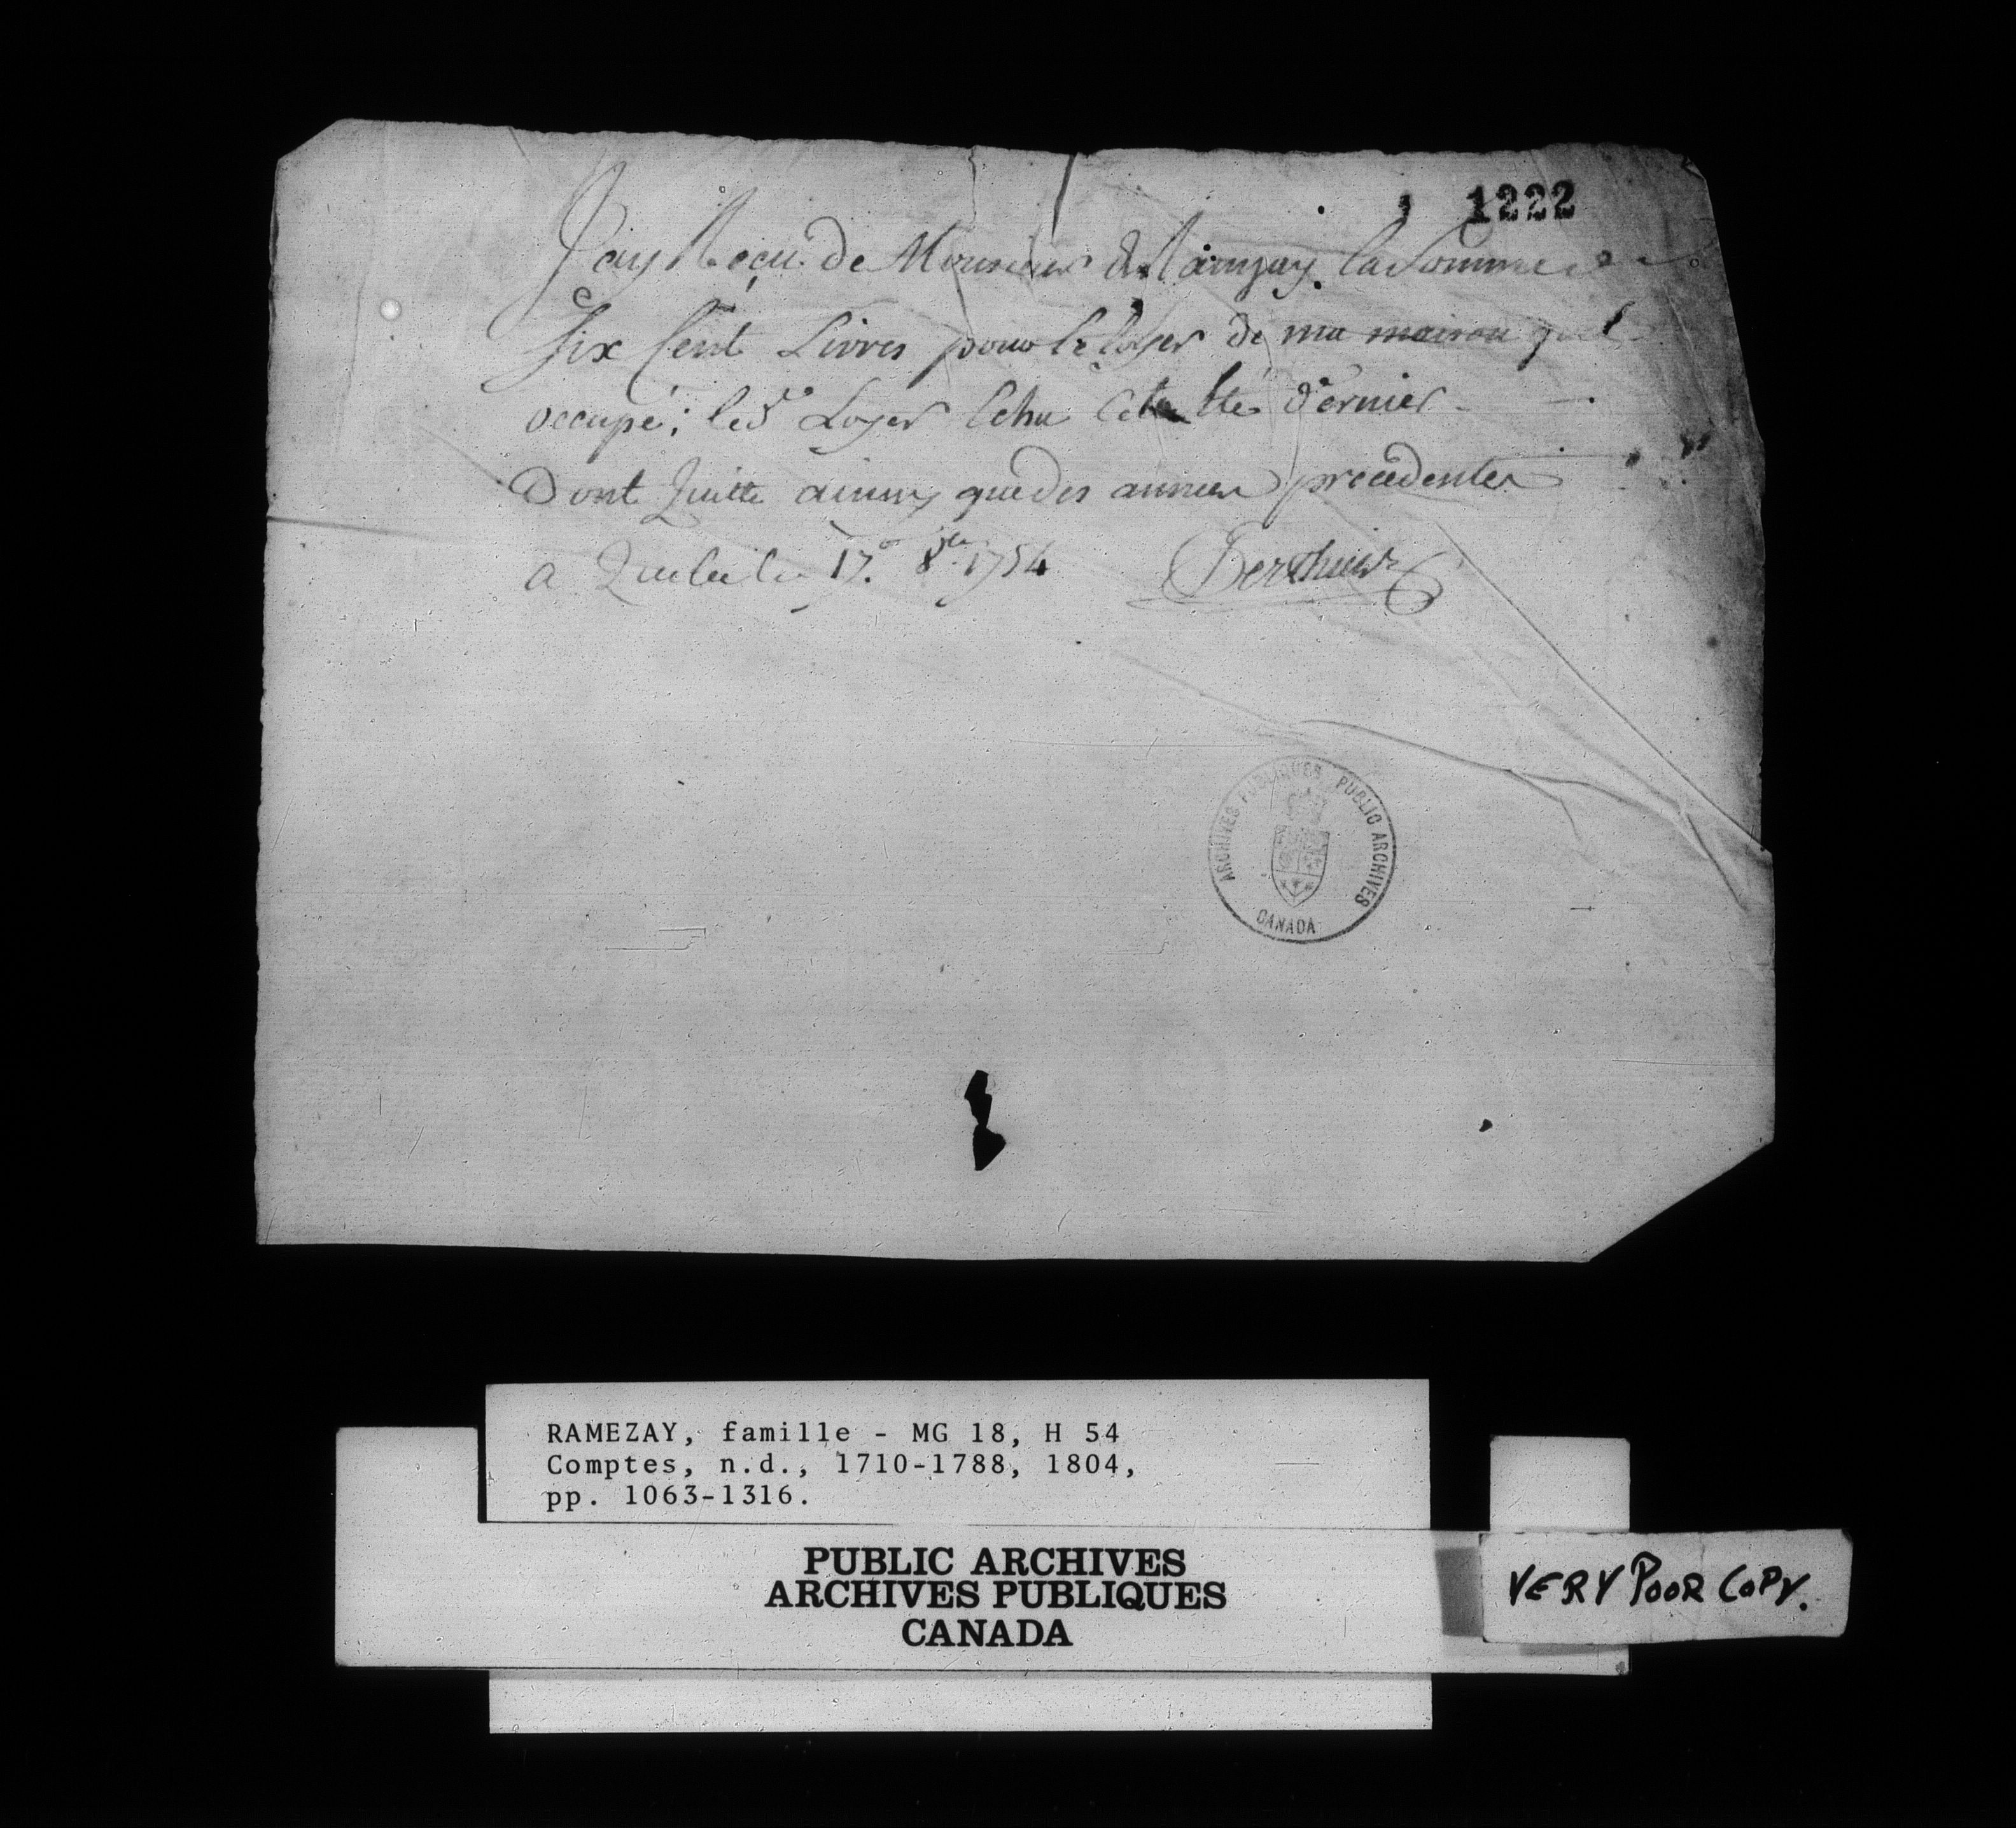 1222
J'ay Reçu de Monsieur de Ramzay la Somme de
Six Cent Livres pour le loyer de ma maison quil
occupé; led.º Loyer Echu Cet Eté dernier
Dont Quitte ainsy que des années precedentes
a Quebec le 17.º 8bre 1754 Berthier
ARCHIVES PUBLIQUES PUBLIC ARCHIVES
CANADA
RAMEZAY, famille - MG 18, H 54
Comptes, n.d., 1710-1788, 1804,
pp. 1063-1316.
PUBLIC ARCHIVES
ARCHIVES PUBLIQUES
CANADA
VERY POOR COPY.